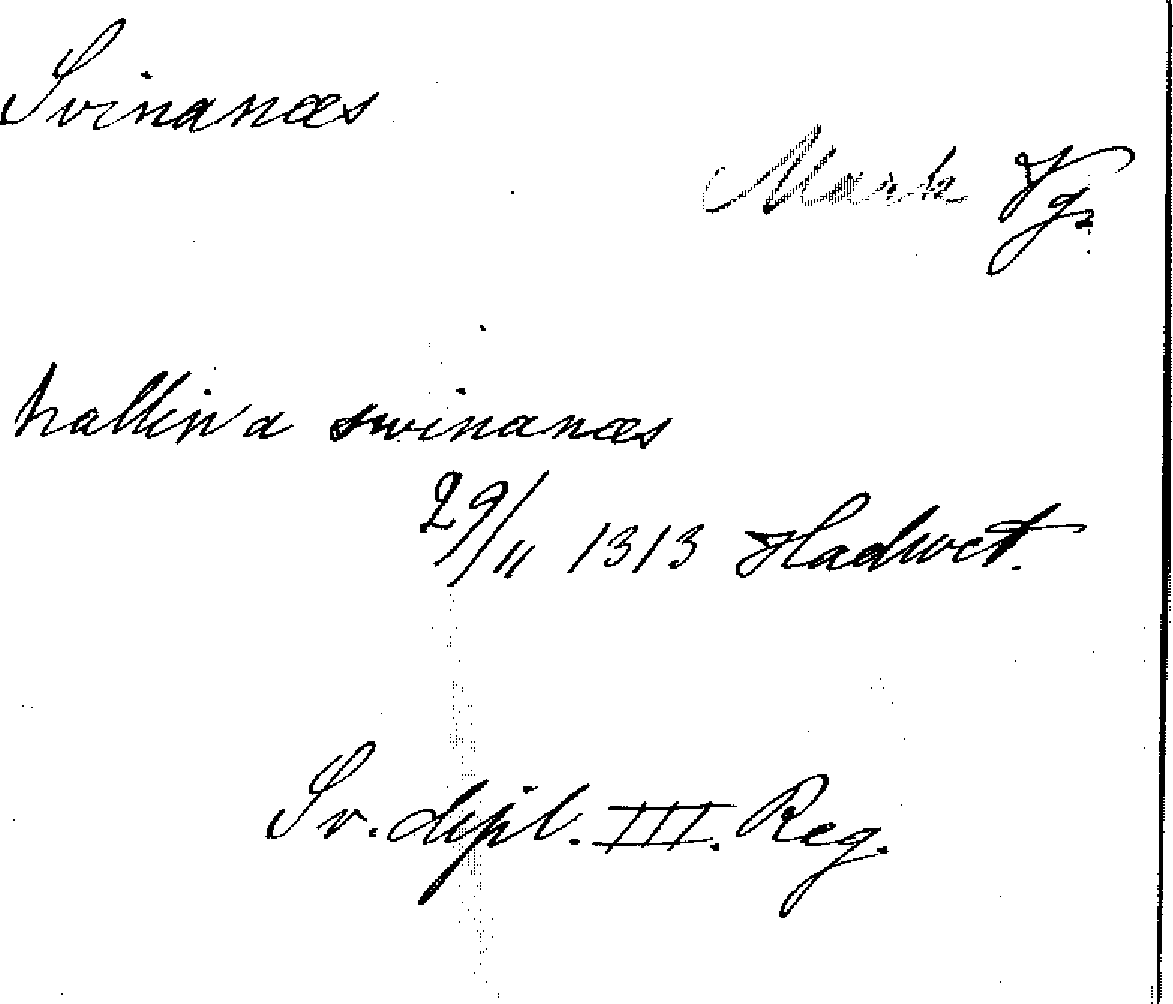 Svinanæs
Mark Vg.
hallin a swinanæs
29/11 1313 Hadwet.
Sv. dipl. III. Reg.